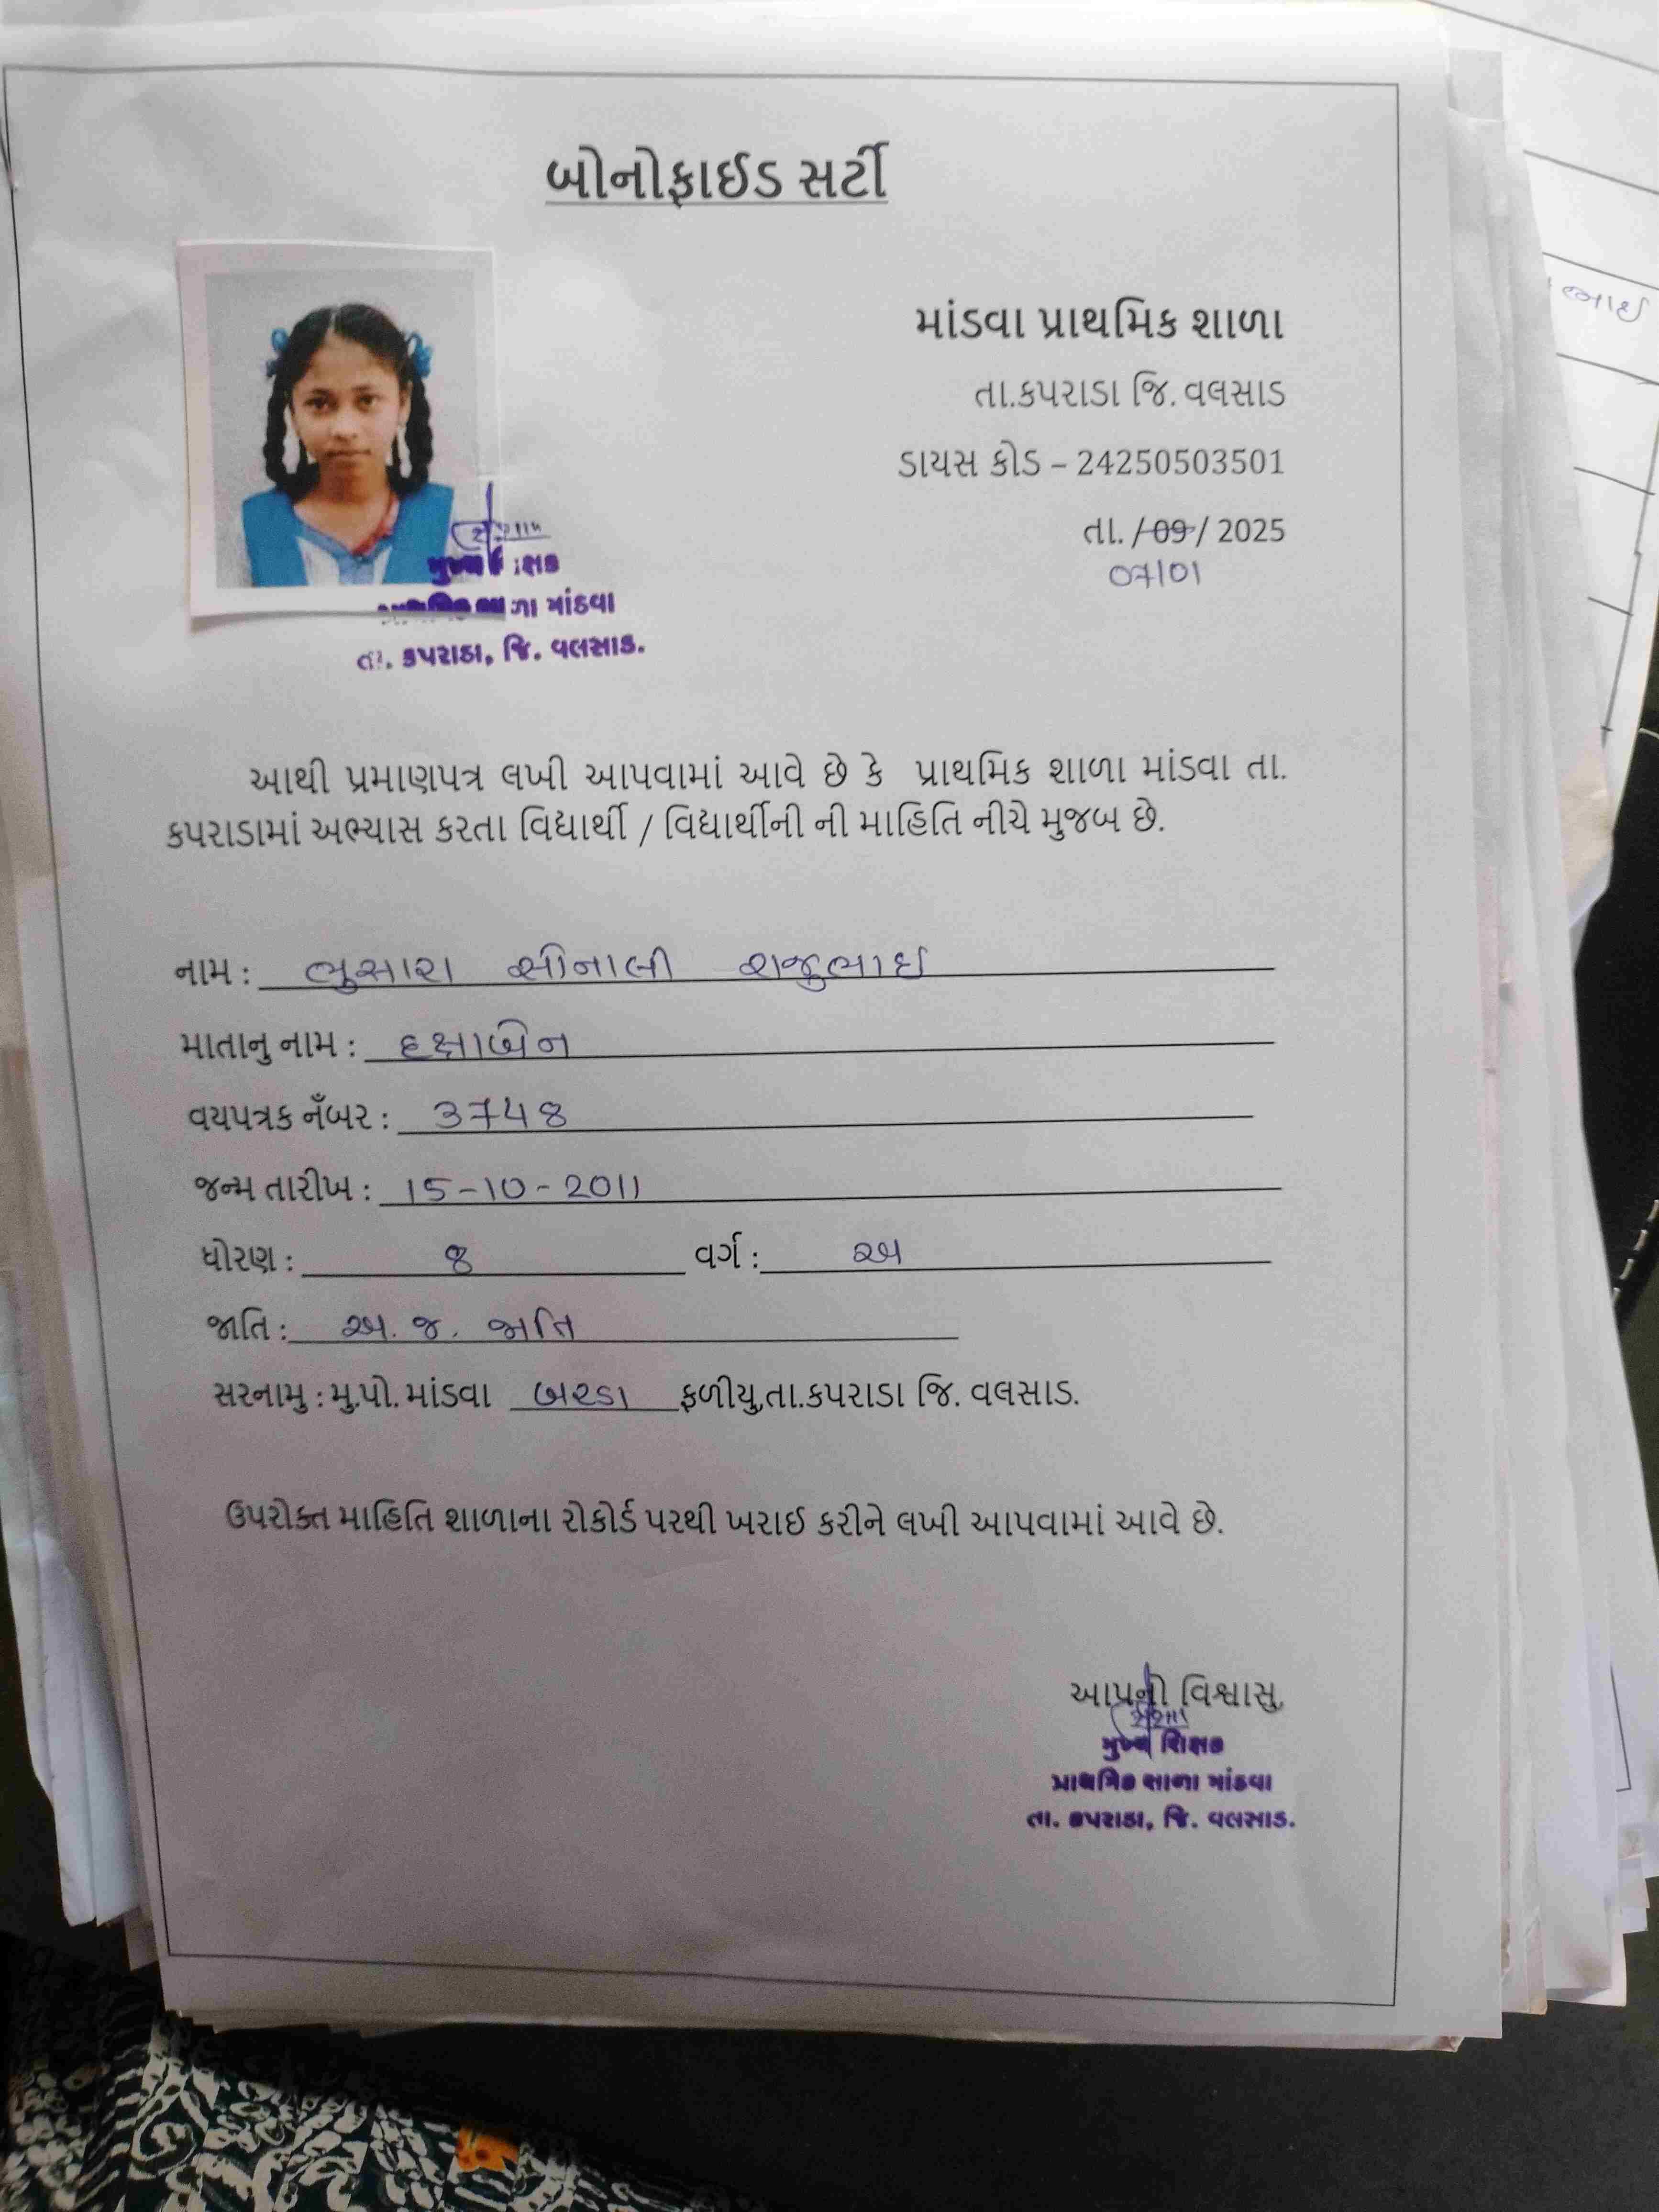 બોનોફાઈડ સર્ટી
માંડવા પ્રાથમિક શાળા
તા.કપરાડા જિ. વલસાડ
ડાયસ કોડ – 24250503501
તા. /09/ 2025
07/01
મુખ્ય શિક્ષક
પ્રાથમિક શાળા માંડવા
તા. કપરાડા, જિ. વલસાડ.
આથી પ્રમાણપત્ર લખી આપવામાં આવે છે કે પ્રાથમિક શાળા માંડવા તા.
કપરાડામાં અભ્યાસ કરતા વિદ્યાર્થી / વિદ્યાર્થીની ની માહિતિ નીચે મુજબ છે.
નામ : ભુસારા સોનાલી રાજુભાઈ
માતાનુ નામ : દક્ષાબેન
વયપત્રક નઁબર : 3748
જન્મ તારીખ : 15-10-2011
ધોરણ : 8 વર્ગ : અ
જાતિ : અ. જ. જાતિ
સરનામુ : મુ.પો. માંડવા બરડા ફળીયુ,તા.કપરાડા જિ. વલસાડ.
ઉપરોક્ત માહિતિ શાળાના રોકોર્ડ પરથી ખરાઈ કરીને લખી આપવામાં આવે છે.
આપનો વિશ્વાસુ,
મુખ્ય શિક્ષક
પ્રાથમિક શાળા માંડવા
તા. કપરાડા, જિ. વલસાડ.
ભાઈ